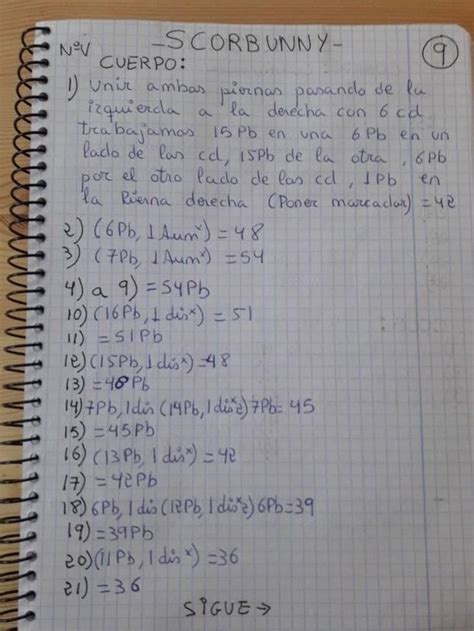 NºV -SCORBUNNY- 9
CUERPO:
1) Unir ambas piernas pasando de la
izquierda a la derecha con 6 cd
trabajamos 15Pb en una 6Pb en un
lado de las cd, 15Pb de la otra, 6Pb
por el otro lado de las cd, 1Pb en
la Pierna derecha (Poner marcador) = 42
2) (6Pb, 1 Aumˣ) = 48
3) (7Pb, 1 Aumˣ) = 54
4) a 9) = 54Pb
10) (16Pb, 1 disˣ) = 51
11) = 51Pb
12) (15Pb, 1 disˣ) = 48
13) = 48Pb
14) 7Pb, 1 dis (14Pb, 1 disˣ2) 7Pb = 45
15) = 45Pb
16) (13Pb, 1 disˣ) = 42
17) = 42Pb
18) 6Pb, 1 dis (12Pb, 1 disˣ2) 6Pb = 39
19) = 39Pb
20) (11Pb, 1 disˣ) = 36
21) = 36
SIGUE →